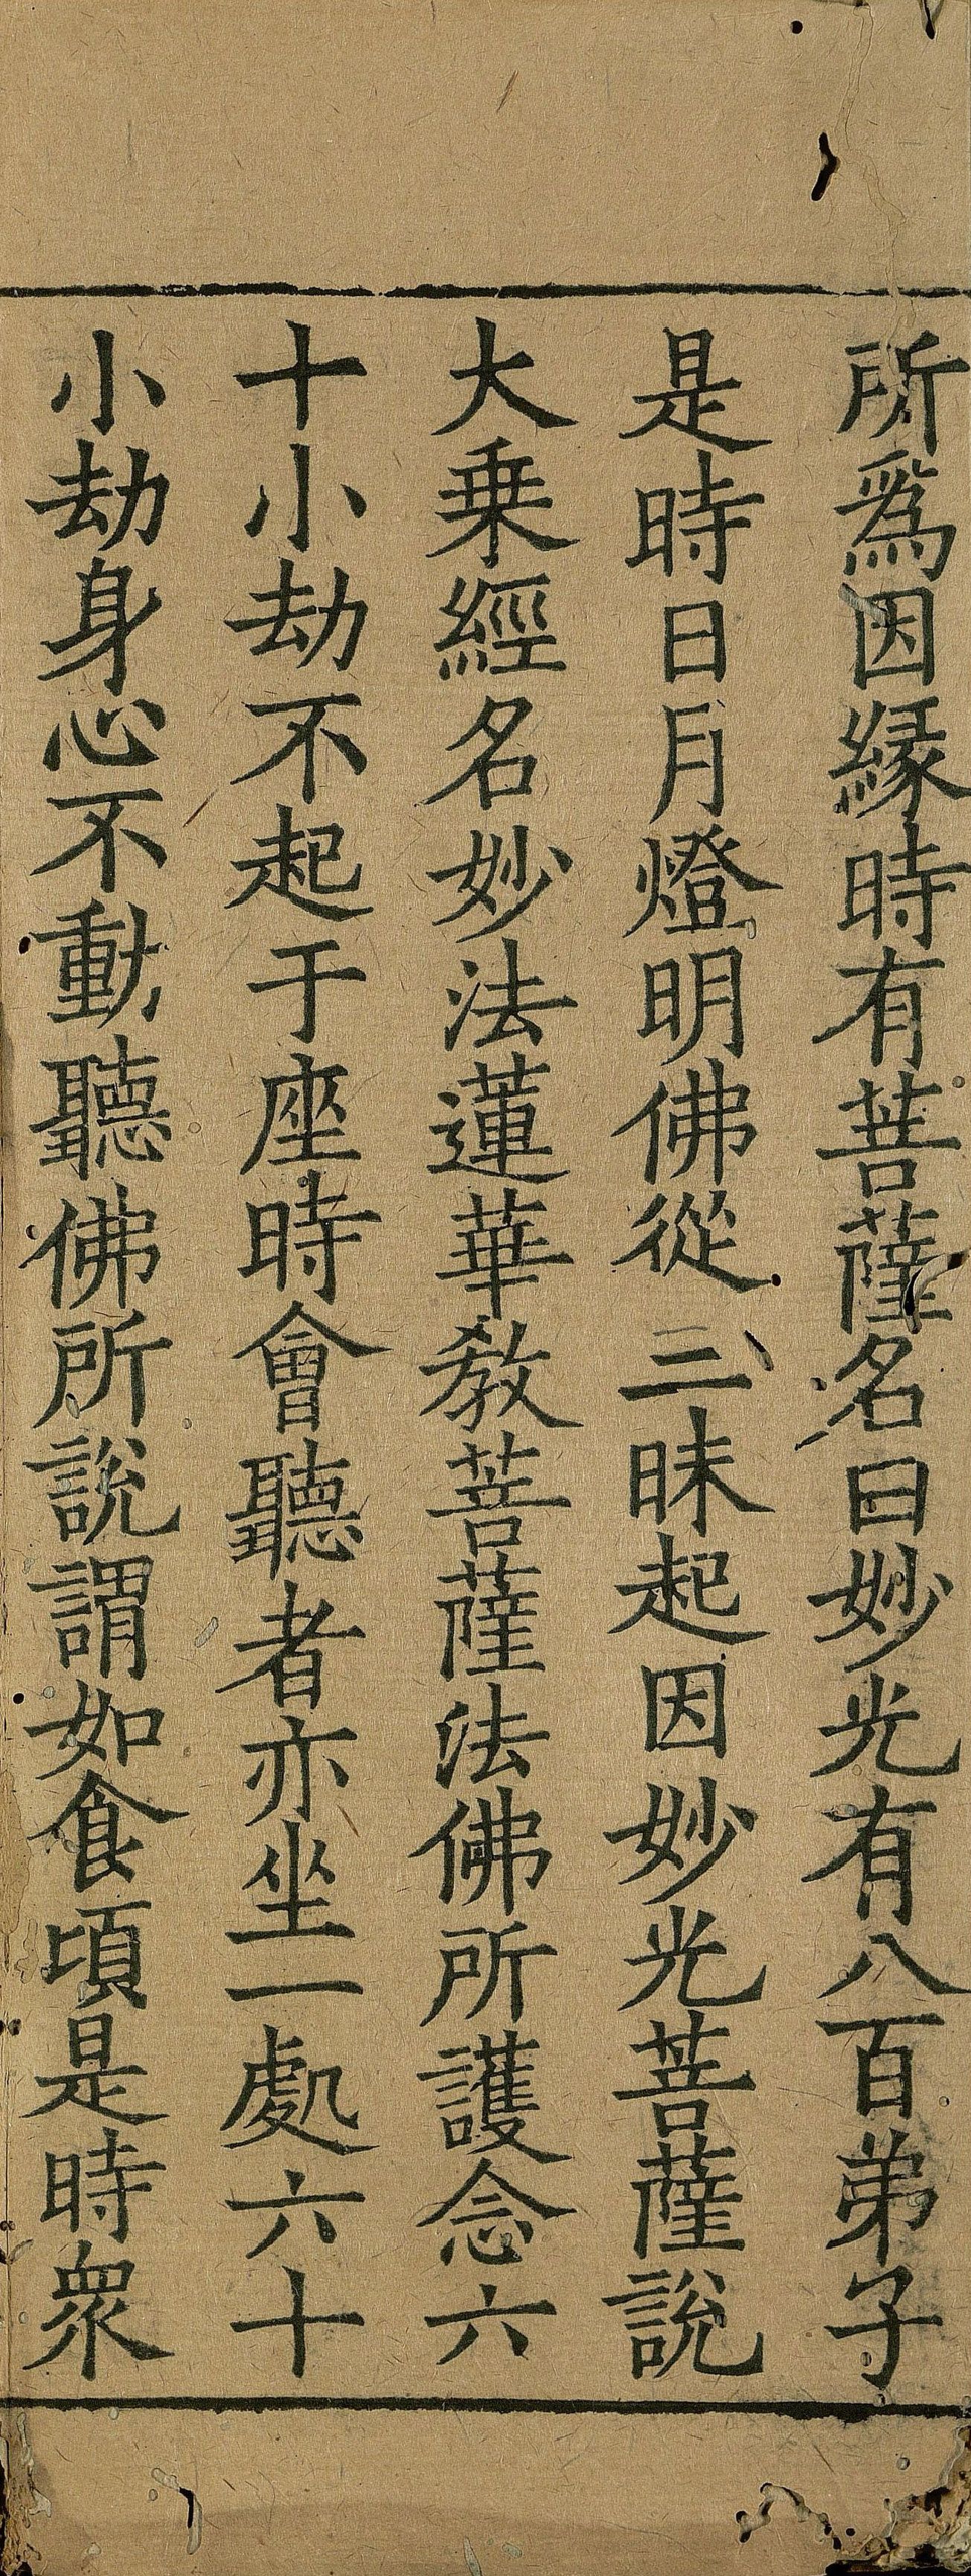 所爲因緣時有菩薩名曰妙光有八百弟子
是時日月燈明佛從三昧起因妙光菩薩說
大乗經名妙法蓮華教菩薩法佛所護念六
十小劫不起于座時會聽者亦坐一處六十
小劫身心不動聽佛所說謂如食頃是時衆